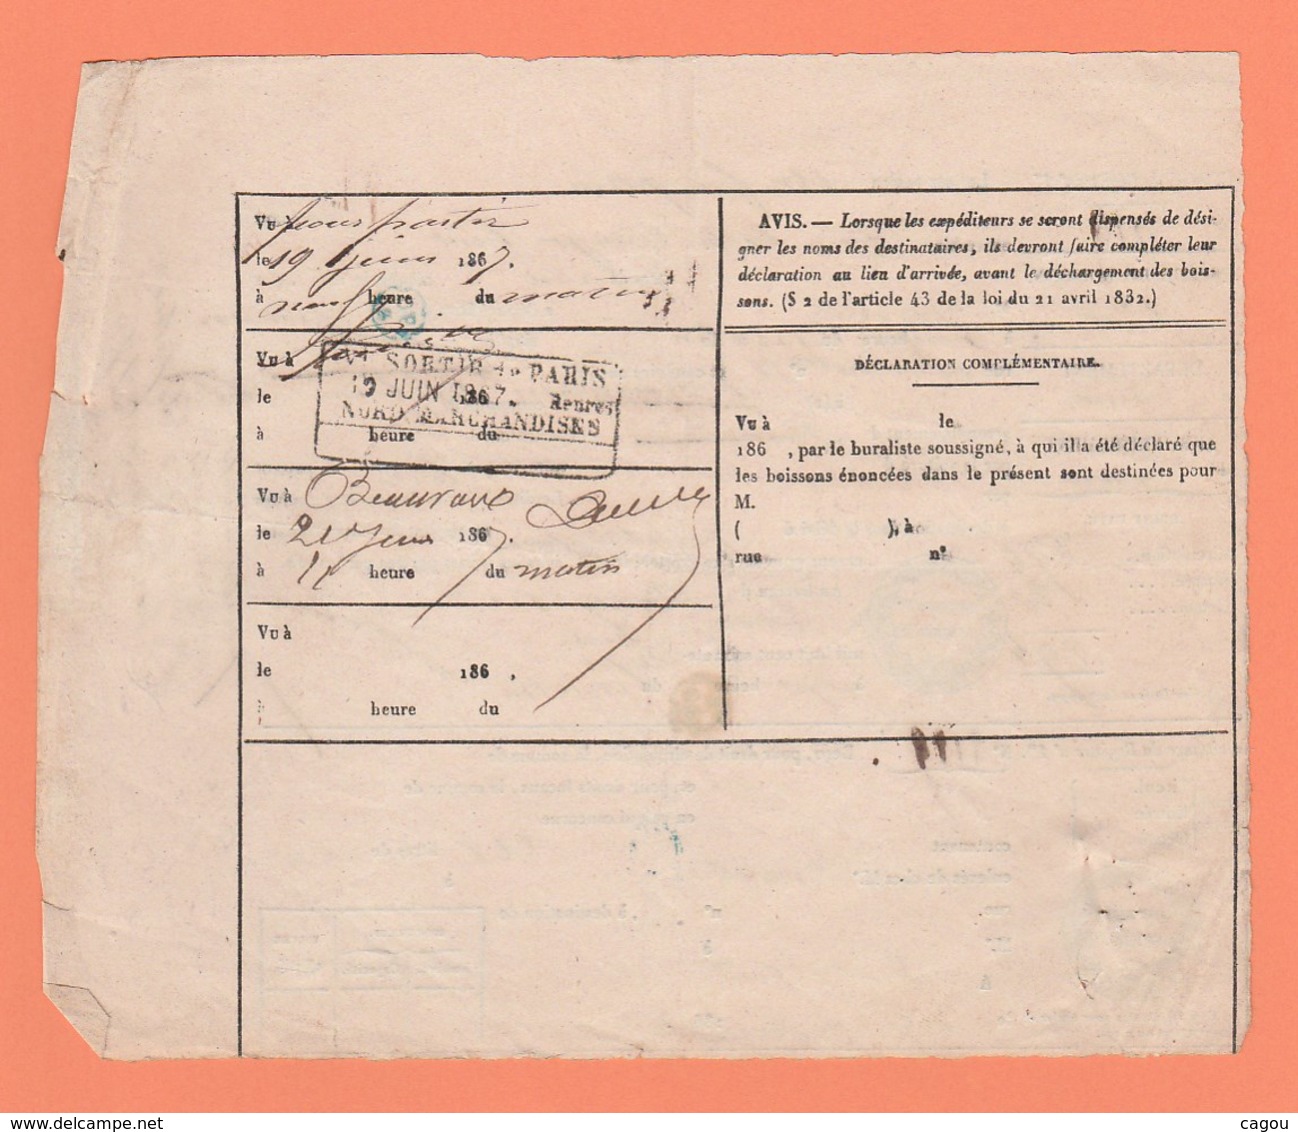 Vu pour partir
le 19 Juin 1867.
à neuf heure du matin
Vu à
le 186
à heure du
Vu SORTIR de PARIS
19 JUIN 1867.
NORD MARCHANDISES
Vu à Beauvais
le 21 Juin 1867.
à 11 heure du matin
Vu à
le 186 ,
à heure du
AVIS. — Lorsque les expéditeurs se seront dispensés de dési-
gner les noms des destinataires, ils devront faire compléter leur
déclaration au lieu d'arrivée, avant le déchargement des bois-
sons. (§ 2 de l'article 43 de la loi du 21 avril 1832.)
DÉCLARATION COMPLÉMENTAIRE.
Vu à le
186 , par le buraliste soussigné, à qui il a été déclaré que
les boissons énoncées dans le présent sont destinées pour
M.
( ), à
rue n°
delcampe.net
cagou